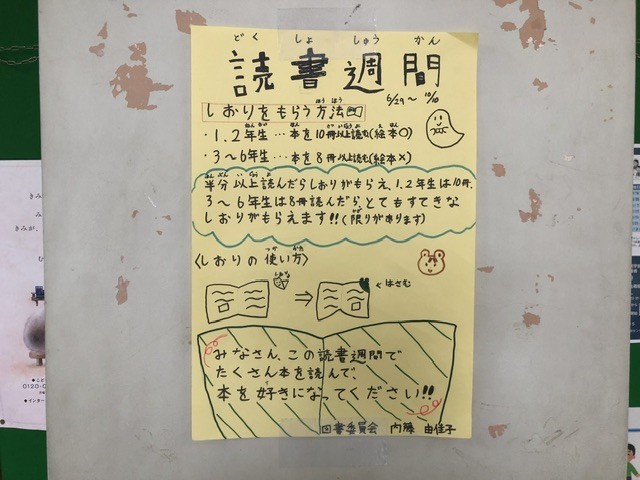 どくしょしゅうかん
読書週間
6/29〜10/10
しおりをもらう方法
・1.2年生…本を10冊以上読む(絵本○)
・3〜6年生…本を8冊以上読む(絵本×)
半分以上読んだらしおりがもらえ、1.2年生は10冊、
3〜6年生は8冊読んだら、とてもすてきな
しおりがもらえます!!(限りがあります)
〈しおりの使い方〉
⇒ ←はさむ
みなさん、この読書週間で
たくさん本を読んで、
本を好きになってください!!
図書委員会 内藤 由佳子